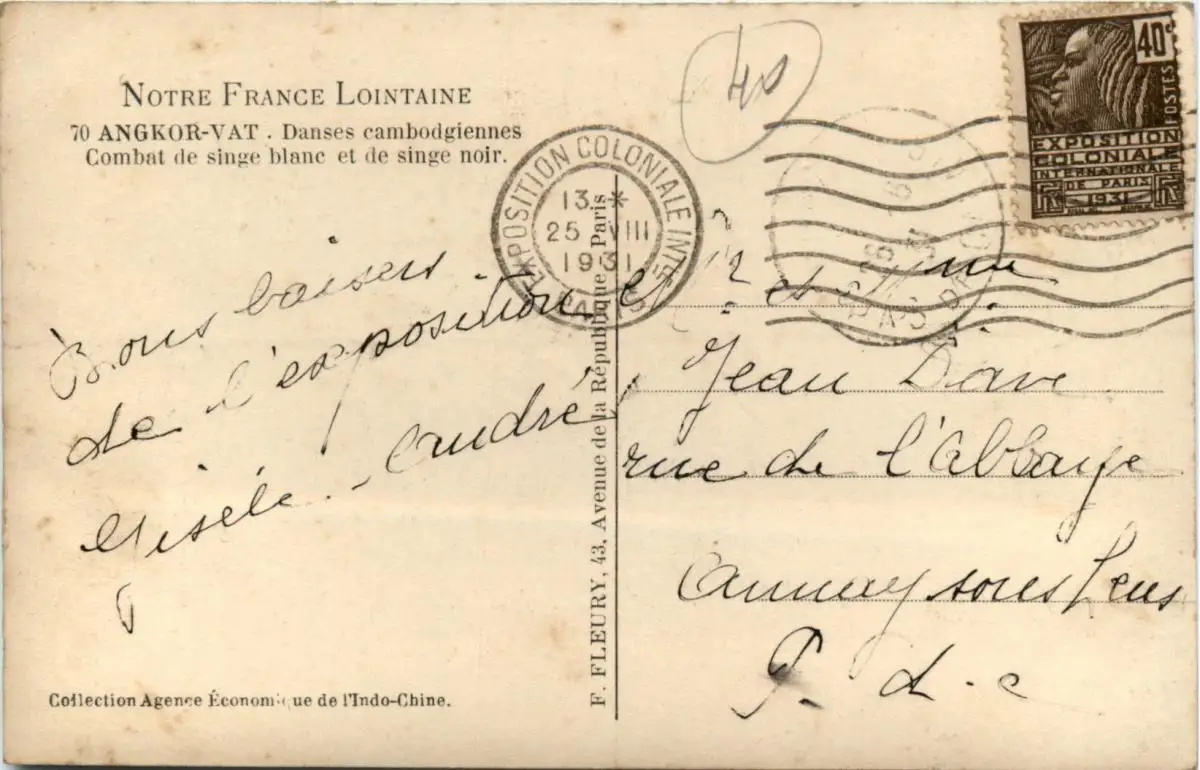 NOTRE FRANCE LOINTAINE
70 ANGKOR-VAT . Danses cambodgiennes
Combat de singe blanc et de singe noir.
Bons baisers
de l'exposition
Gisèle - André
Collection Agence Économique de l'Indo-Chine.
F. FLEURY, 43, Avenue de la République Paris
EXPOSITION COLONIALE INTle
PARIS
13 *
25 VIII
1931
40
40c
POSTES
EXPOSITION
COLONIALE
INTERNATIONALE
DE PARIS
1931
et Mme
Jean
rue de l'Abbaye
Annay sous Lens
P. d. c